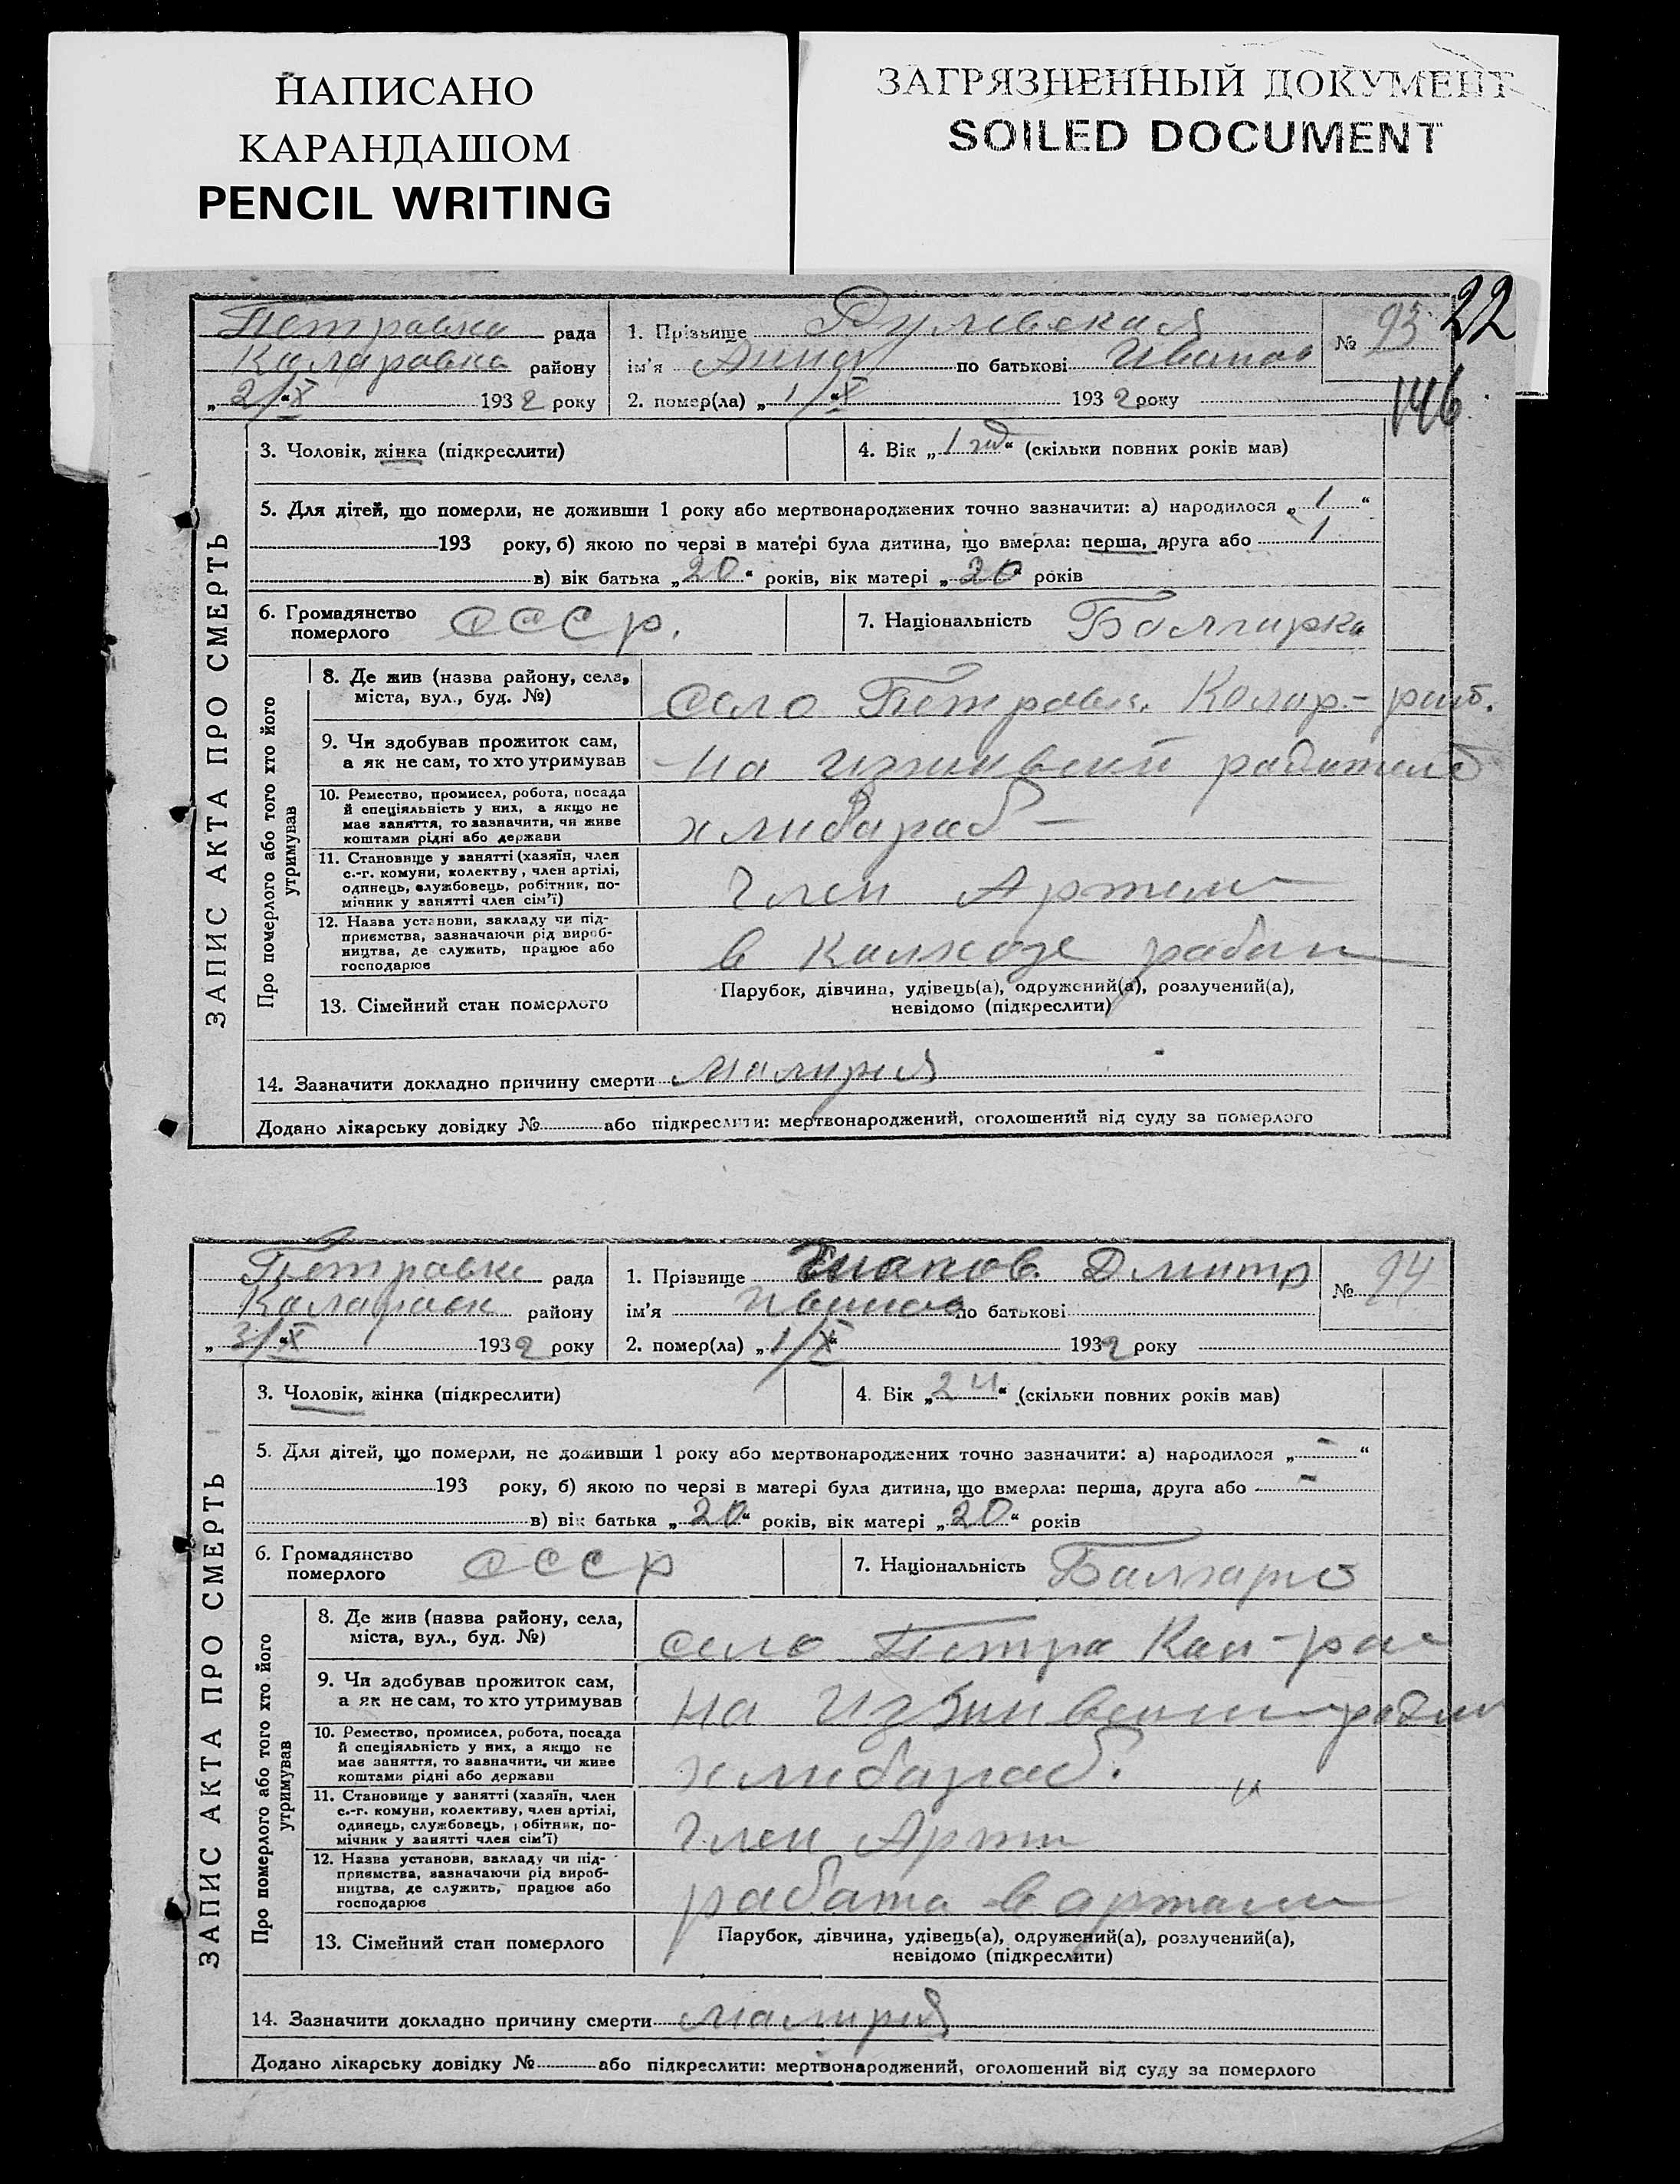 НАПИСАНО
КАРАНДАШОМ
PENCIL WRITING
ЗАГРЯЗНЕННЫЙ ДОКУМЕНТ
SOILED DOCUMENT
22
146
ЗАПИС АКТА ПРО СМЕРТЬ
Петровка рада
Каларовка району
„ 2/„X 1932 року
1. Прізвище
ім'я Анна по батькові Иванов
2. помер(ла) „ 1/„X 1932 року
№ 93
3. Чоловік, жінка (підкреслити)
4. Вік „ 1 год “ (скільки повних років мав)
5. Для дітей, що померли, не доживши 1 року або мертвонароджених точно зазначити: а) народилося „ 1 “
193 року, б) якою по черзі в матері була дитина, що вмерла: перша, друга або 1
в) вік батька „ 20 “ років, вік матері „ 20 “ років
6. Громадянство
померлого
СССР.
7. Національність Болгарка
Про померлого або того хто його
утримував
8. Де жив (назва району, села,
міста, вул., буд. №)
село Петровк. Колар-район.
9. Чи здобував прожиток сам,
а як не сам, то хто утримував
на
10. Ремество, промисел, робота, посада
й спеціяльність у них, а якщо не
має заняття, то зазначити, чи живе
коштами рідні або держави
хлибараб –
11. Становище у занятті (хазяїн, член
с.-г. комуни, колектву, член артілі,
одинець, службовець, робітник, по-
мічник у занятті член сім'ї)
Член Артели
12. Назва установи, закладу чи під-
приємства, зазначаючи рід вироб-
ництва, де служить, працює або
господарює
в Калхозе
13. Сімейний стан померлого
Парубок, дівчина, удівець(а), одружений(а), розлучений(а),
невідомо (підкреслити)
14. Зазначити докладно причину смерти малирия
Додано лікарську довідку № або підкреслити: мертвонароджений, оголошений від суду за померлого
ЗАПИС АКТА ПРО СМЕРТЬ
Петровка рада
району
„ 3/„X 1932 року
1. Прізвище Дмитр
ім'я по батькові
2. помер(ла) „ 1/X“ 1932 року
№ 94
3. Чоловік, жінка (підкреслити)
4. Вік „ “ (скільки повних років мав)
5. Для дітей, що померли, не доживши 1 року або мертвонароджених точно зазначити: а) народилося „ - “
193 року, б) якою по черзі в матері була дитина, що вмерла: перша, друга або -
в) вік батька „ 20 “ років, вік матері „ 20 “ років
6. Громадянство
померлого
СССР
7. Національність
Про померлого або того хто його
утримував
8. Де жив (назва району, села,
міста, вул., буд. №)
село Петро
9. Чи здобував прожиток сам,
а як не сам, то хто утримував
на
10. Ремество, промисел, робота, посада
й спеціяльність у них, а якщо не
має заняття, то зазначити, чи живе
коштами рідні або держави
хлибараб.
11. Становище у занятті (хазяїн, член
с.-г. комуни, колективу, член артілі,
одинець, службовець, робітник, по-
мічник у занятті член сім'ї)
Член
12. Назва установи, закладу чи під-
приємства, зазначаючи рід вироб-
ництва, де служить, працює або
господарює
работа в артели
13. Сімейний стан померлого
Парубок, дівчина, удівець(а), одружений(а), розлучений(а),
невідомо (підкреслити)
14. Зазначити докладно причину смерти малирия
Додано лікарську довідку № або підкреслити: мертвонароджений, оголошений від суду за померлого